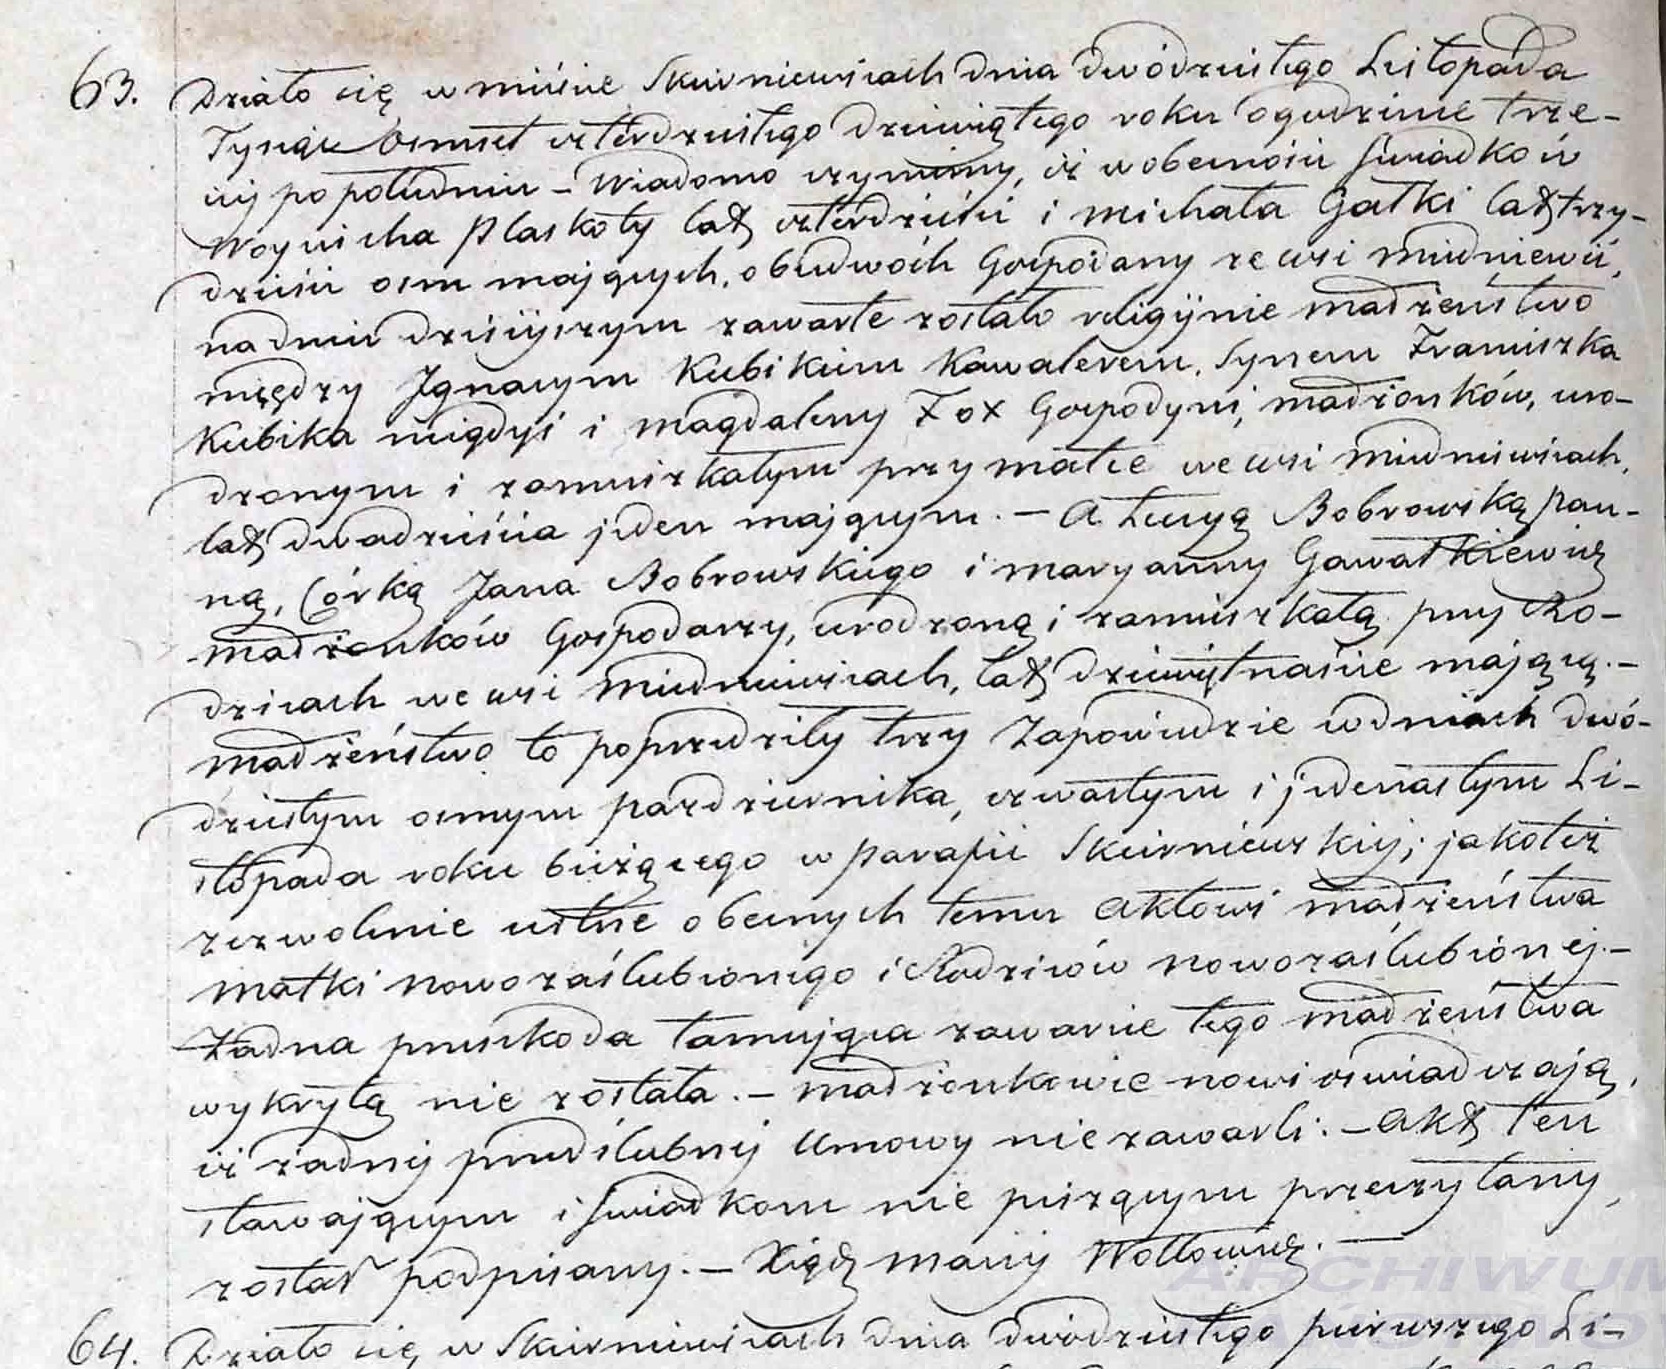 63. Działo się w mieście Skierniewicach dnia dwódziestego Listopada
Tysiąc osmset czterdziestego dziewiątego roku o godzinie trze-
ciej po południu – Wiadomo czyniemy, iż w obecności świadków
Woyciecha Plaskoty lat czterdzieści i Michała Gałki lat trzy-
dzieści osm mających, obudwóch Gospodarzy ze wsi Miedniewic,
na dniu dzisieyszym zawarte zostało religiynie małżeństwo
między Jgnacym Kubikiem Kawalerem, Synem Franciszka
Kubika niegdyś i Magdaleny Fox Gospodyni, małżonków, uro-
dzonym i zamieszkałym przy matce we wsi Miedniewicach,
lat dwadzieścia jeden mającym. – A Łucyą Bobrowską pan-
ną, Córką Jana Bobrowskiego i Maryanny Gawałkiewicz
małżonków Gospodarzy, urodzoną i zamieszkałą przy Ro-
dzicach we wsi Miedniewicach, lat dziewiętnaście mającą. –
Małżeństwo to poprzedziły trzy Zapowiedzie w dniach dwó-
dziestym osmym października, czwartym i jedenastym Li-
stopada roku bieżącego w parafii Skierniewskiej; jakoteż
zezwolenie ustne obecnych temu Aktowi małżeństwa
matki nowozaślubionego i Rodziców nowozaślubionej. –
Żadna przeszkoda tamująca zawarcie tego małżeństwa
wykrytą nie została. – Małżonkowie nowi oświadczają,
iż żadnej przedślubnej Umowy nie zawarli. – Akt ten
stawającym i świadkom nie piszącym przeczytany,
został podpisany. – Xiądz Maciej Wołłowicz. –
64. Działo się w Skierniewicach dnia dwódziestego pierwszego Li-
ARCHIWUM